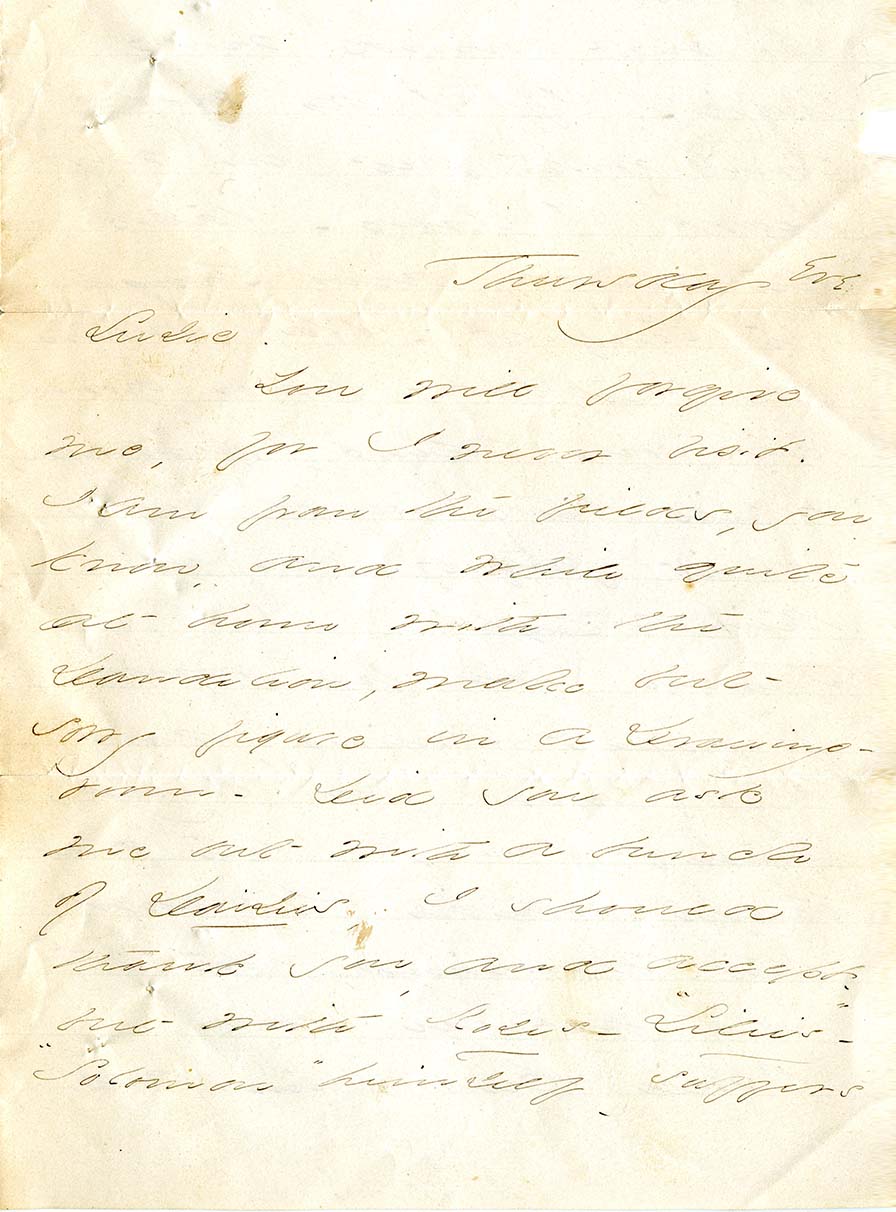 Thursday Eve
Susie.
You will forgive
me, for I never visit.
I am from the fields, you
know, and while quite
at home with the
Dandelion, make but
sorry figure in a Drawing-
room - Did you ask
me out with a bunch
of Daisies, I should
thank you, and accept,
but with Roses - "Lilies" -
"Solomon" himself - suffers